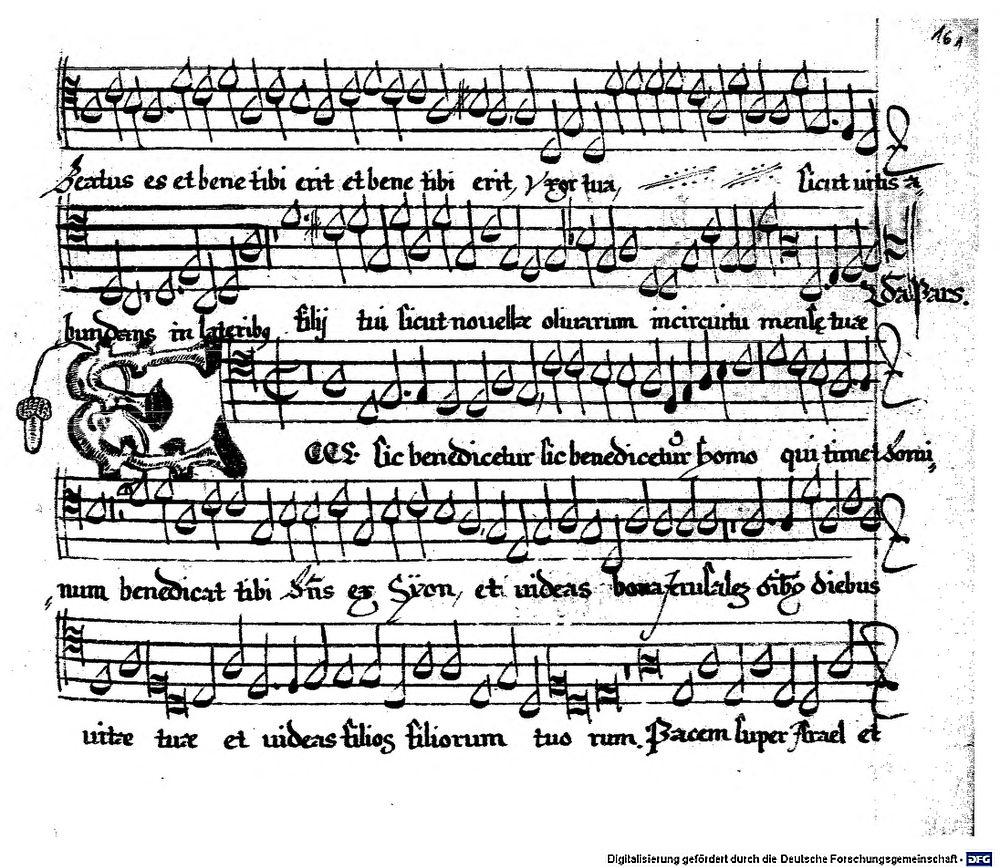 161
Beatus es et bene tibi erit et bene tibi erit, Vxor tua, sicut uitis a,
bundans in lateribq filij tui sicut nouellæ oliuarum incircuitu mensę tuæ
2da Pars.
ECCE sic benedicetur sic benedicetur homo qui timet domi,
num benedicat tibi dns ex Syon, et uideas bona diebus
uitæ tuæ et uideas filios filiorum tuo rum. Pacem super Israel et
Digitalisierung gefördert durch die Deutsche Forschungsgemeinschaft - DFG